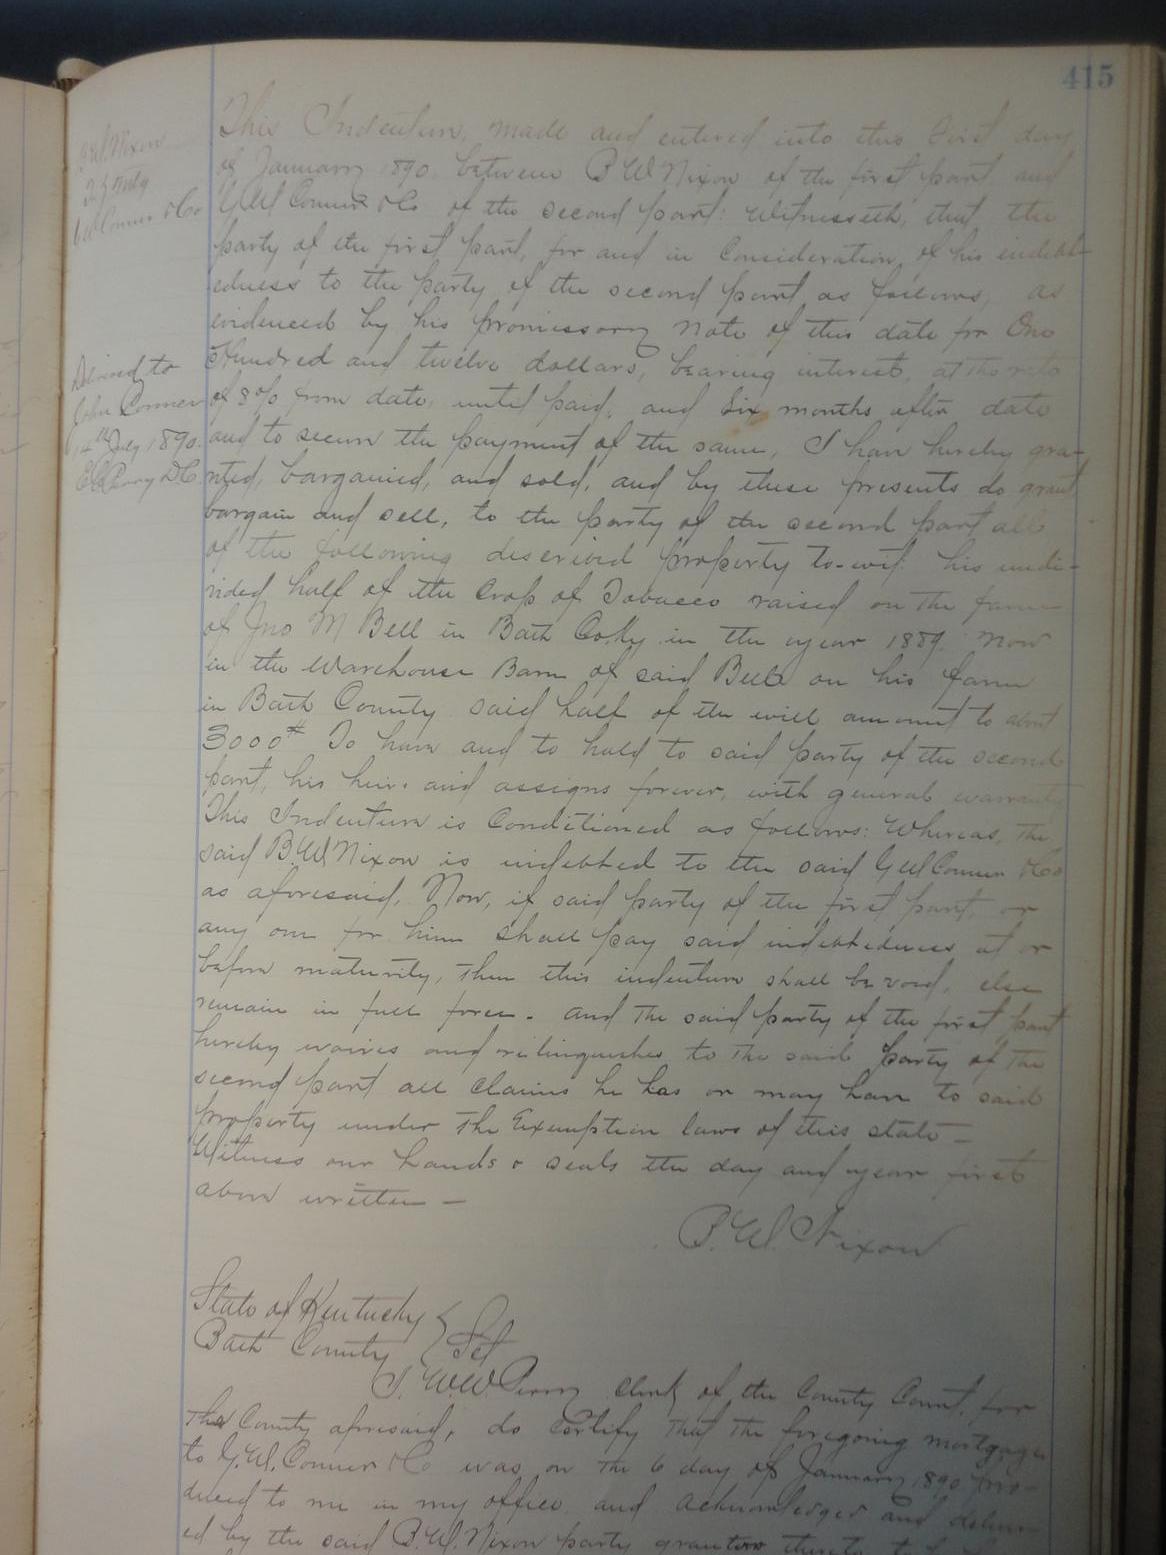 415
B.W. Nixon
To } Mtg
G.W. Conner & Co
Delivered to
John Conner
14th July 1890.
Perry D.C.
This Indenture, made and entered into this first day
of January 1890. between B W Nixon of the first part and
G W Conner & Co of the second part: Witnesseth, that the
party of the first part, for and in Consideration of his indebt-
edness to the party of the second part as follows, as
evidenced by his promissory note of this date for One
Hundred and twelve dollars, bearing interest, at the rate
of 8% from date, until paid, and Six months after date
and to secure the payment of the same, I have hereby gra-
nted, bargained, and sold, and by these presents do grant
bargain and sell, to the party of the second part all
of the following described property to-wit: his undi-
vided half of the Crop of Tobacco raised on the farm
of Jno M Bell in Bath Co Ky in the year 1889. Now
in the Warehouse Barn of said Bell on his farm
in Bath County said half of the will amount to about
3000# To have and to hold to said party of the second
part, his heirs and assigns forever, with general warranty
This Indenture is Conditioned as follows: Whereas, the
said B.W. Nixon is indebted to the said G W Conner & Co
as aforesaid, Now, if said party of the first part, or
any one for him shall pay said indebtedness at or
before maturity, then this indenture shall be void, else
remain in full force. And the said party of the first part
hereby waives and relinquishes to the said party of the
second part all claims he has or may have to said
property under the Exemption laws of this state —
Witness our hands & seals the day and year first
above written —
B. W. Nixon
State of Kentucky }
Bath County } Sct
I. W W Perry Clerk of the County Court, for
the County aforesaid, do certify that the foregoing mortgage
to G. W. Conner & Co was on the 6 day of January 1890 pro-
duced to me in my office and acknowledged and deliver-
ed by the said B. W. Nixon party grantor thereto to be